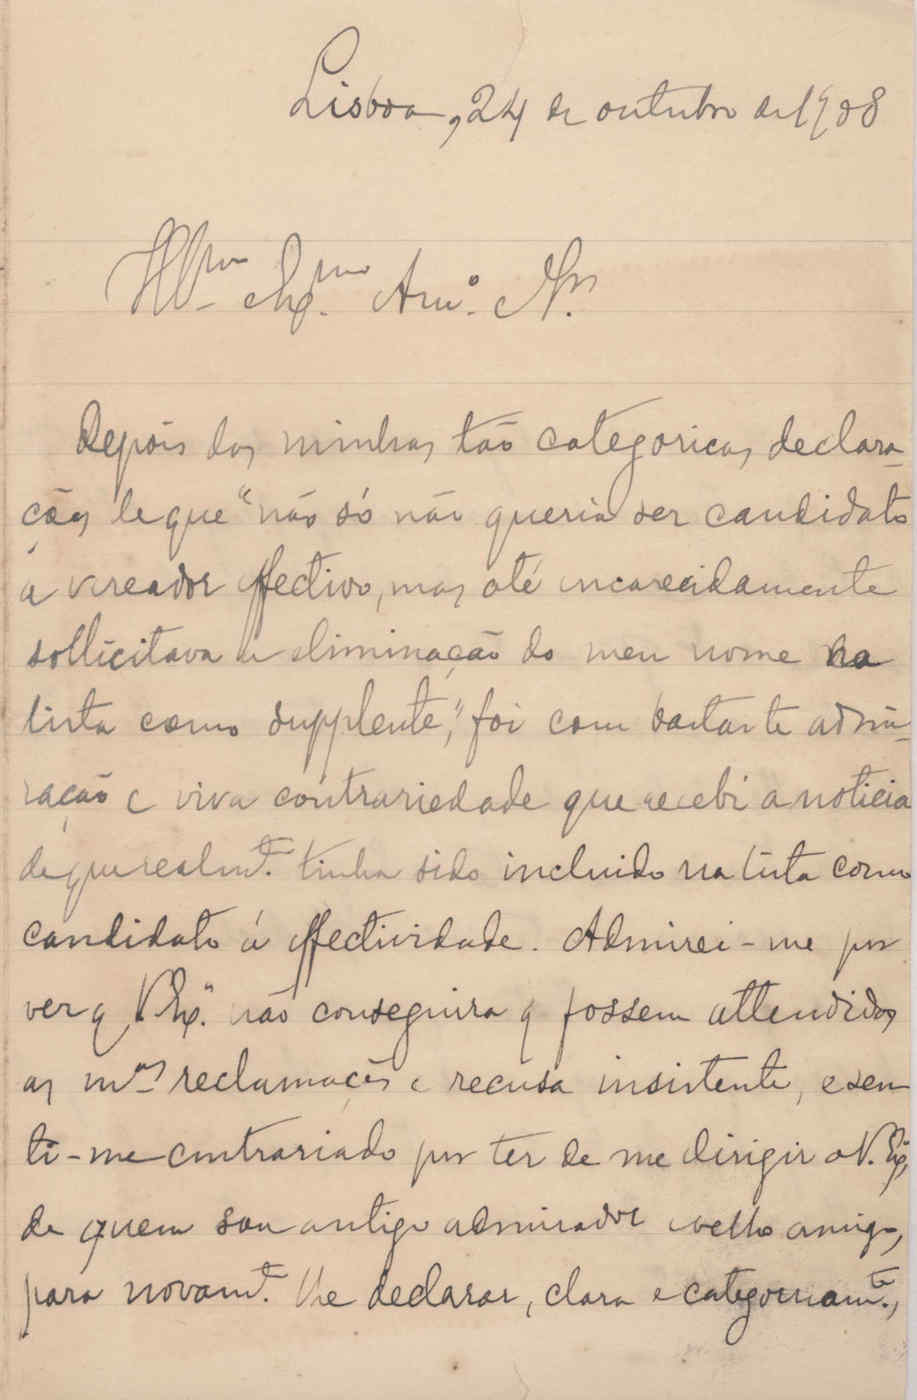 Lisboa, 24 de outubro de 1908
Illmo. e Exmo. Amo. e Sr.
Depois das minhas tão categoricas declara-
ções de que "não só não queria ser candidato
a vereador effectivo, mas até encarecidamente
sollicitava a eliminação do meu nome na
lista como supplente," foi com bastante admi-
ração e viva contrariedade que recebi a noticia
de que realmte. tinha sido incluido na lista como
candidato á effectividade. Admirei-me por
ver q V. Exa. não conseguira q fossem attendidas
as mas reclamações e recusa insistente, e sen
ti-me contrariado por ter de me dirigir a V. Exa,
de quem sou antigo admirador e velho amigo,
para novamte. lhe declarar, clara e categoricamte.,